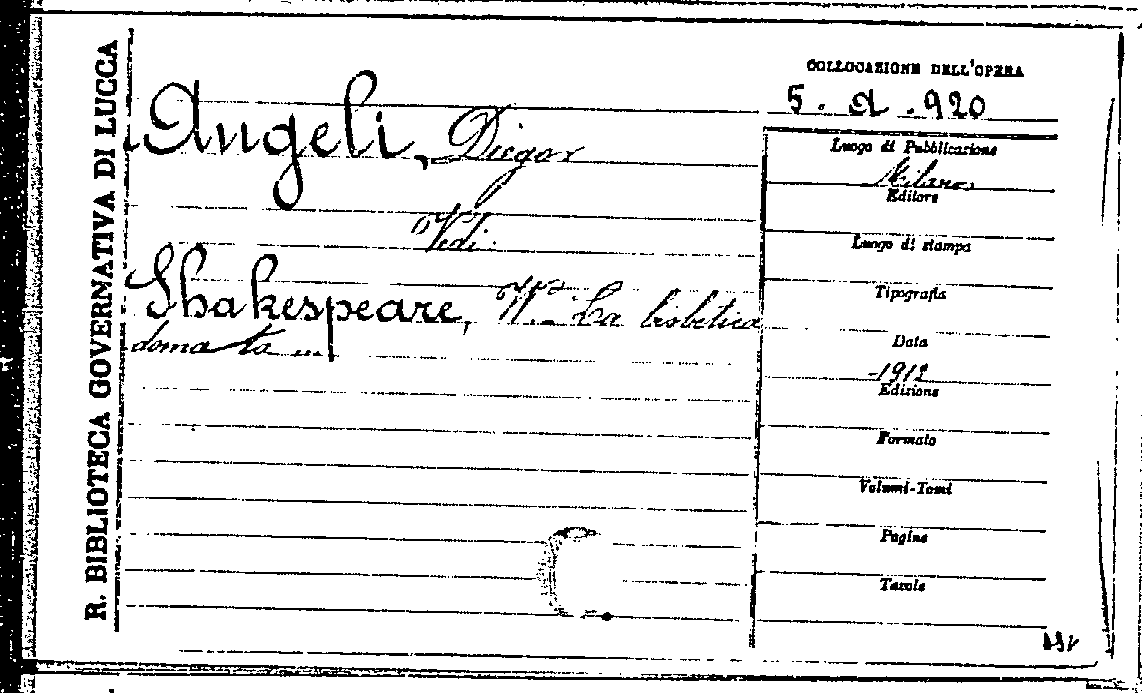 R. BIBLIOTECA GOVERNATIVA DI LUCCA
COLLOCAZIONE DELL'OPERA
5. A. 920
Angeli, Diego
Vedi:
Shakespeare, W. - La bisbetica
domata ...
Luogo di Pubblicazione
Milano,
Editore
Luogo di stampa
Tipografia
Data
1912
Edizione
Formato
Volumi-Tomi
Pagine
Tavole